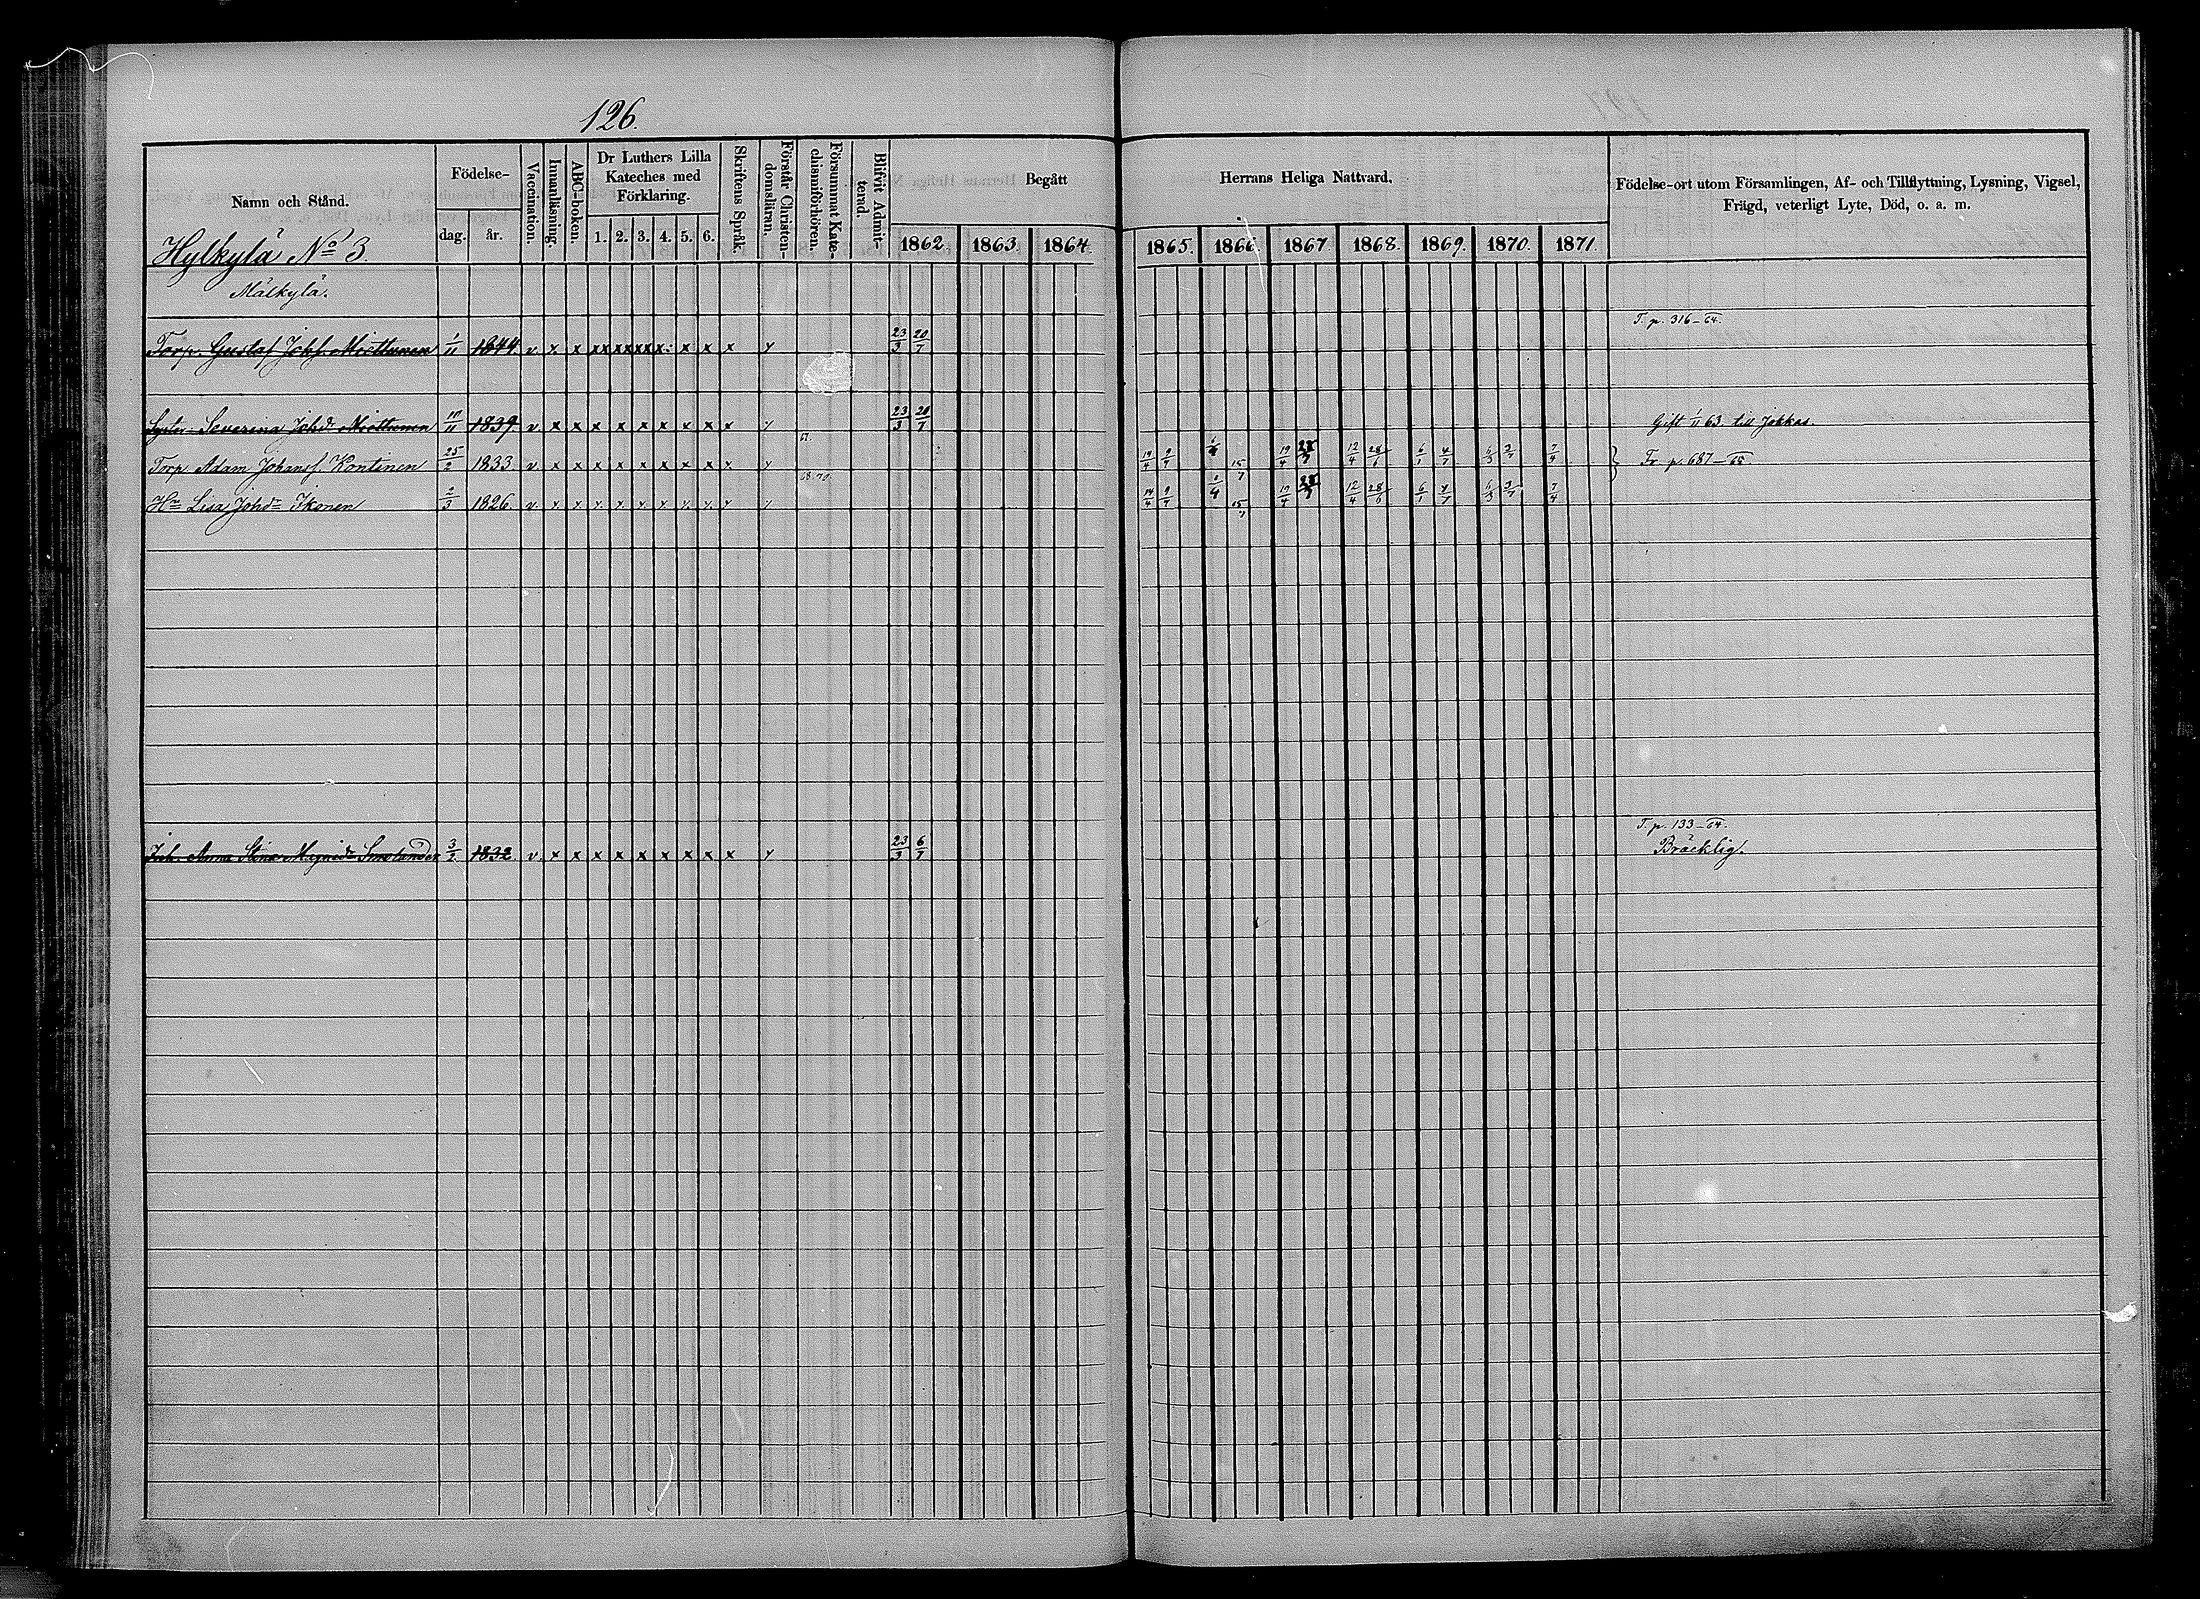 126.
Namn och Stånd.
Födelse-
dag. år.
Vaccination.
Innanläsning.
ABC-boken.
Dr Luthers Lilla
Kateches med
Förklaring.
1. 2. 3. 4. 5. 6.
Skriftens Språk.
Förstår Christen-
domsläran.
Försummat Kate-
chismiförhören.
Blifvit Admit-
terad.
Begått
Herrans Heliga Nattvard.
1862. 1863. 1864. 1865. 1866. 1867 1868. 1869. 1870. 1871.
Födelse-ort utom Församlingen, Af- och Tillflyttning, Lysning, Vigsel,
Frägd, veterligt Lyte, Död, o. a. m.
Hylkylä No 3.
Mälkylä.
T. p. 316-64.
Torp. Gustaf Johs. Miettunen 1/11 1844. v x x xx xx xx x x x x x 23/3 20/7
Syster Severina Johdr Miettunen 1839 v x x x x x x x x x x 23/3 20/7 Gift 1/11 63 till Jokkas.
67.
Torp. Adam Johanss. Kontinen 25/2 1833 v x x x x x x x x x x 14/4 9/7 15/7 19/4 12/4 28/6 6/1 4/7 6/3 3/7 7/4 Fr. p. 687-65.
68.70.
Hu Lisa Johdr Ikonen 2/3 1826 v x x x x x x x x x x 14/4 9/7 15/7 19/4 12/4 28/6 6/1 4/7 6/3 3/7 7/4
T. p. 133-64.
Inh. Anna Stina Magnidr Smolander 3/2 1832. v x x x x x x x x x x 23/3 6/7 Bräcklig.